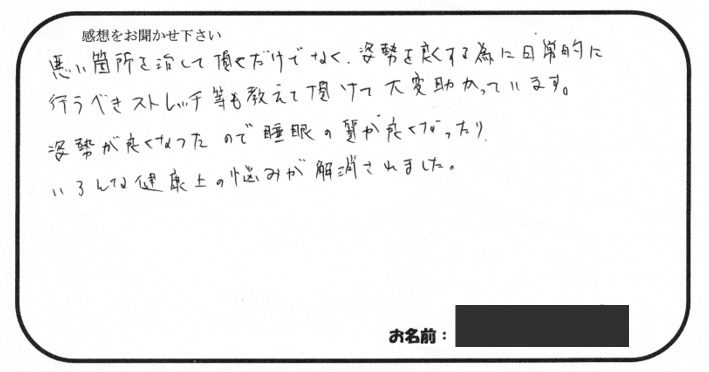 感想をお聞かせ下さい
悪い箇所を治して頂くだけでなく、姿勢を良くする為に日常的に
行うべきストレッチ等も教えて頂けて大変助かっています。
姿勢が良くなったので睡眠の質が良くなったり、
いろんな健康上の悩みが解消されました。
お名前：